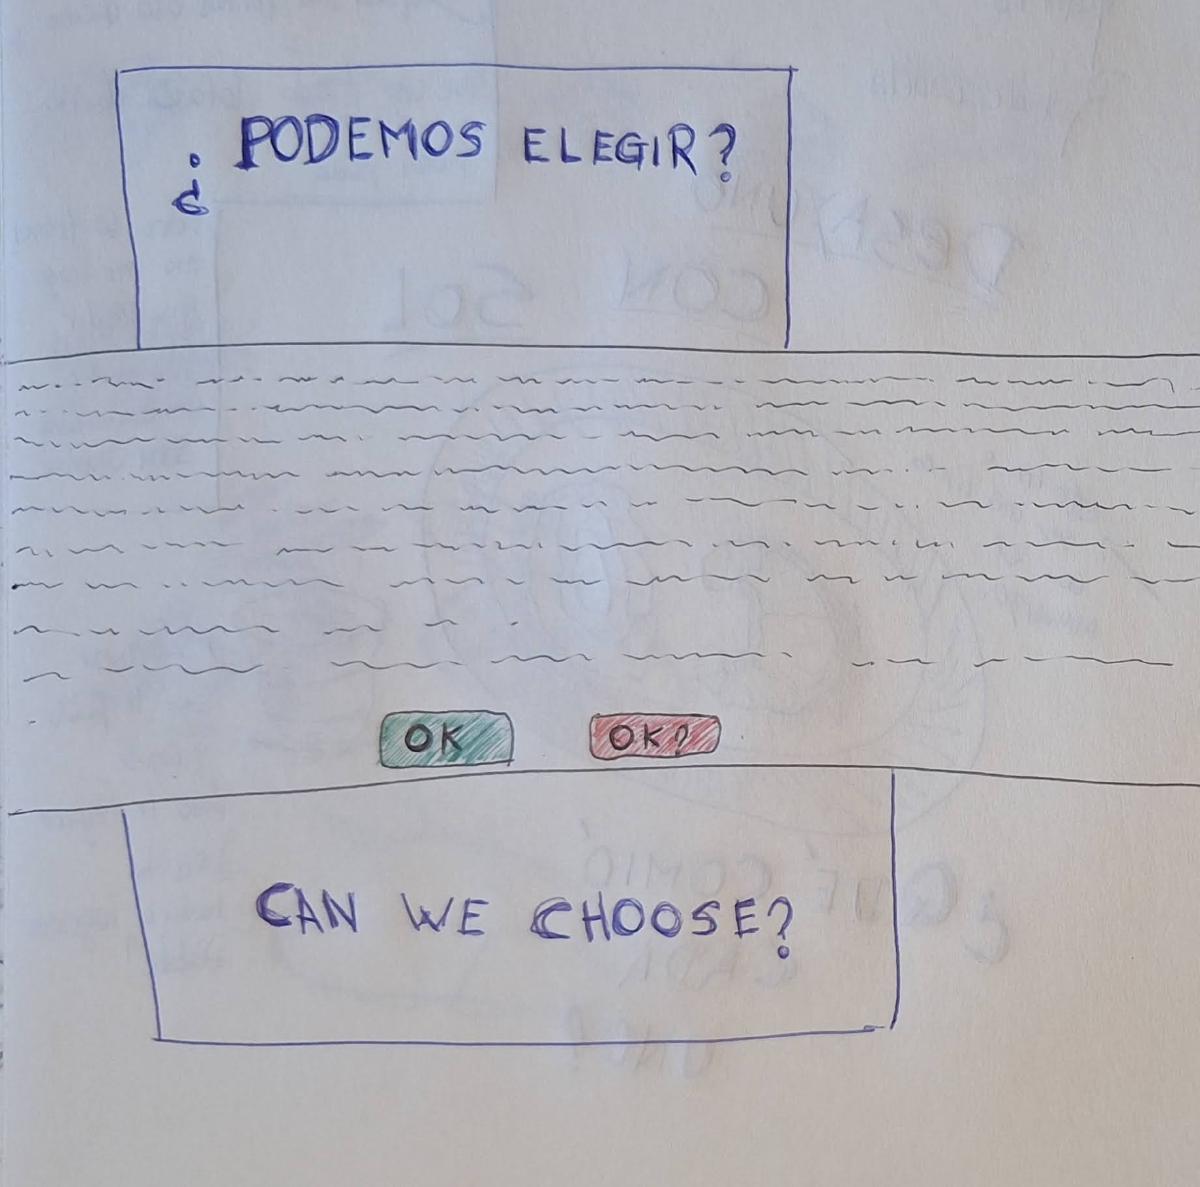 ¿PODEMOS ELEGIR?
OK
OK?
CAN WE CHOOSE?